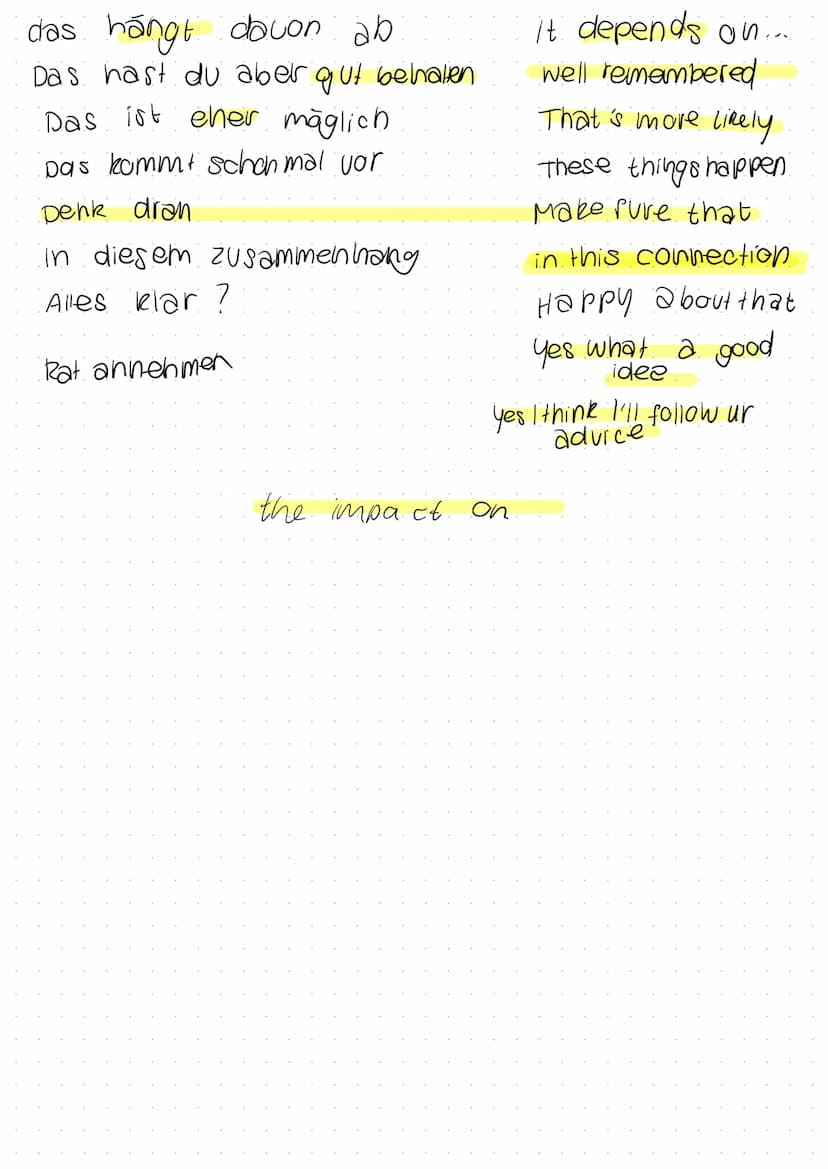 das hängt davon ab It depends on...
Das hast du aber gut behalten well remembered
Das ist eher möglich That's more likely
Das kommt schon mal vor These things happen
Denk dran Make sure that
in diesem Zusammenhang in this connection
Alles klar? Happy about that
Rat annehmen yes what a good
idee
yes I think I'll follow ur
advice
the impact on